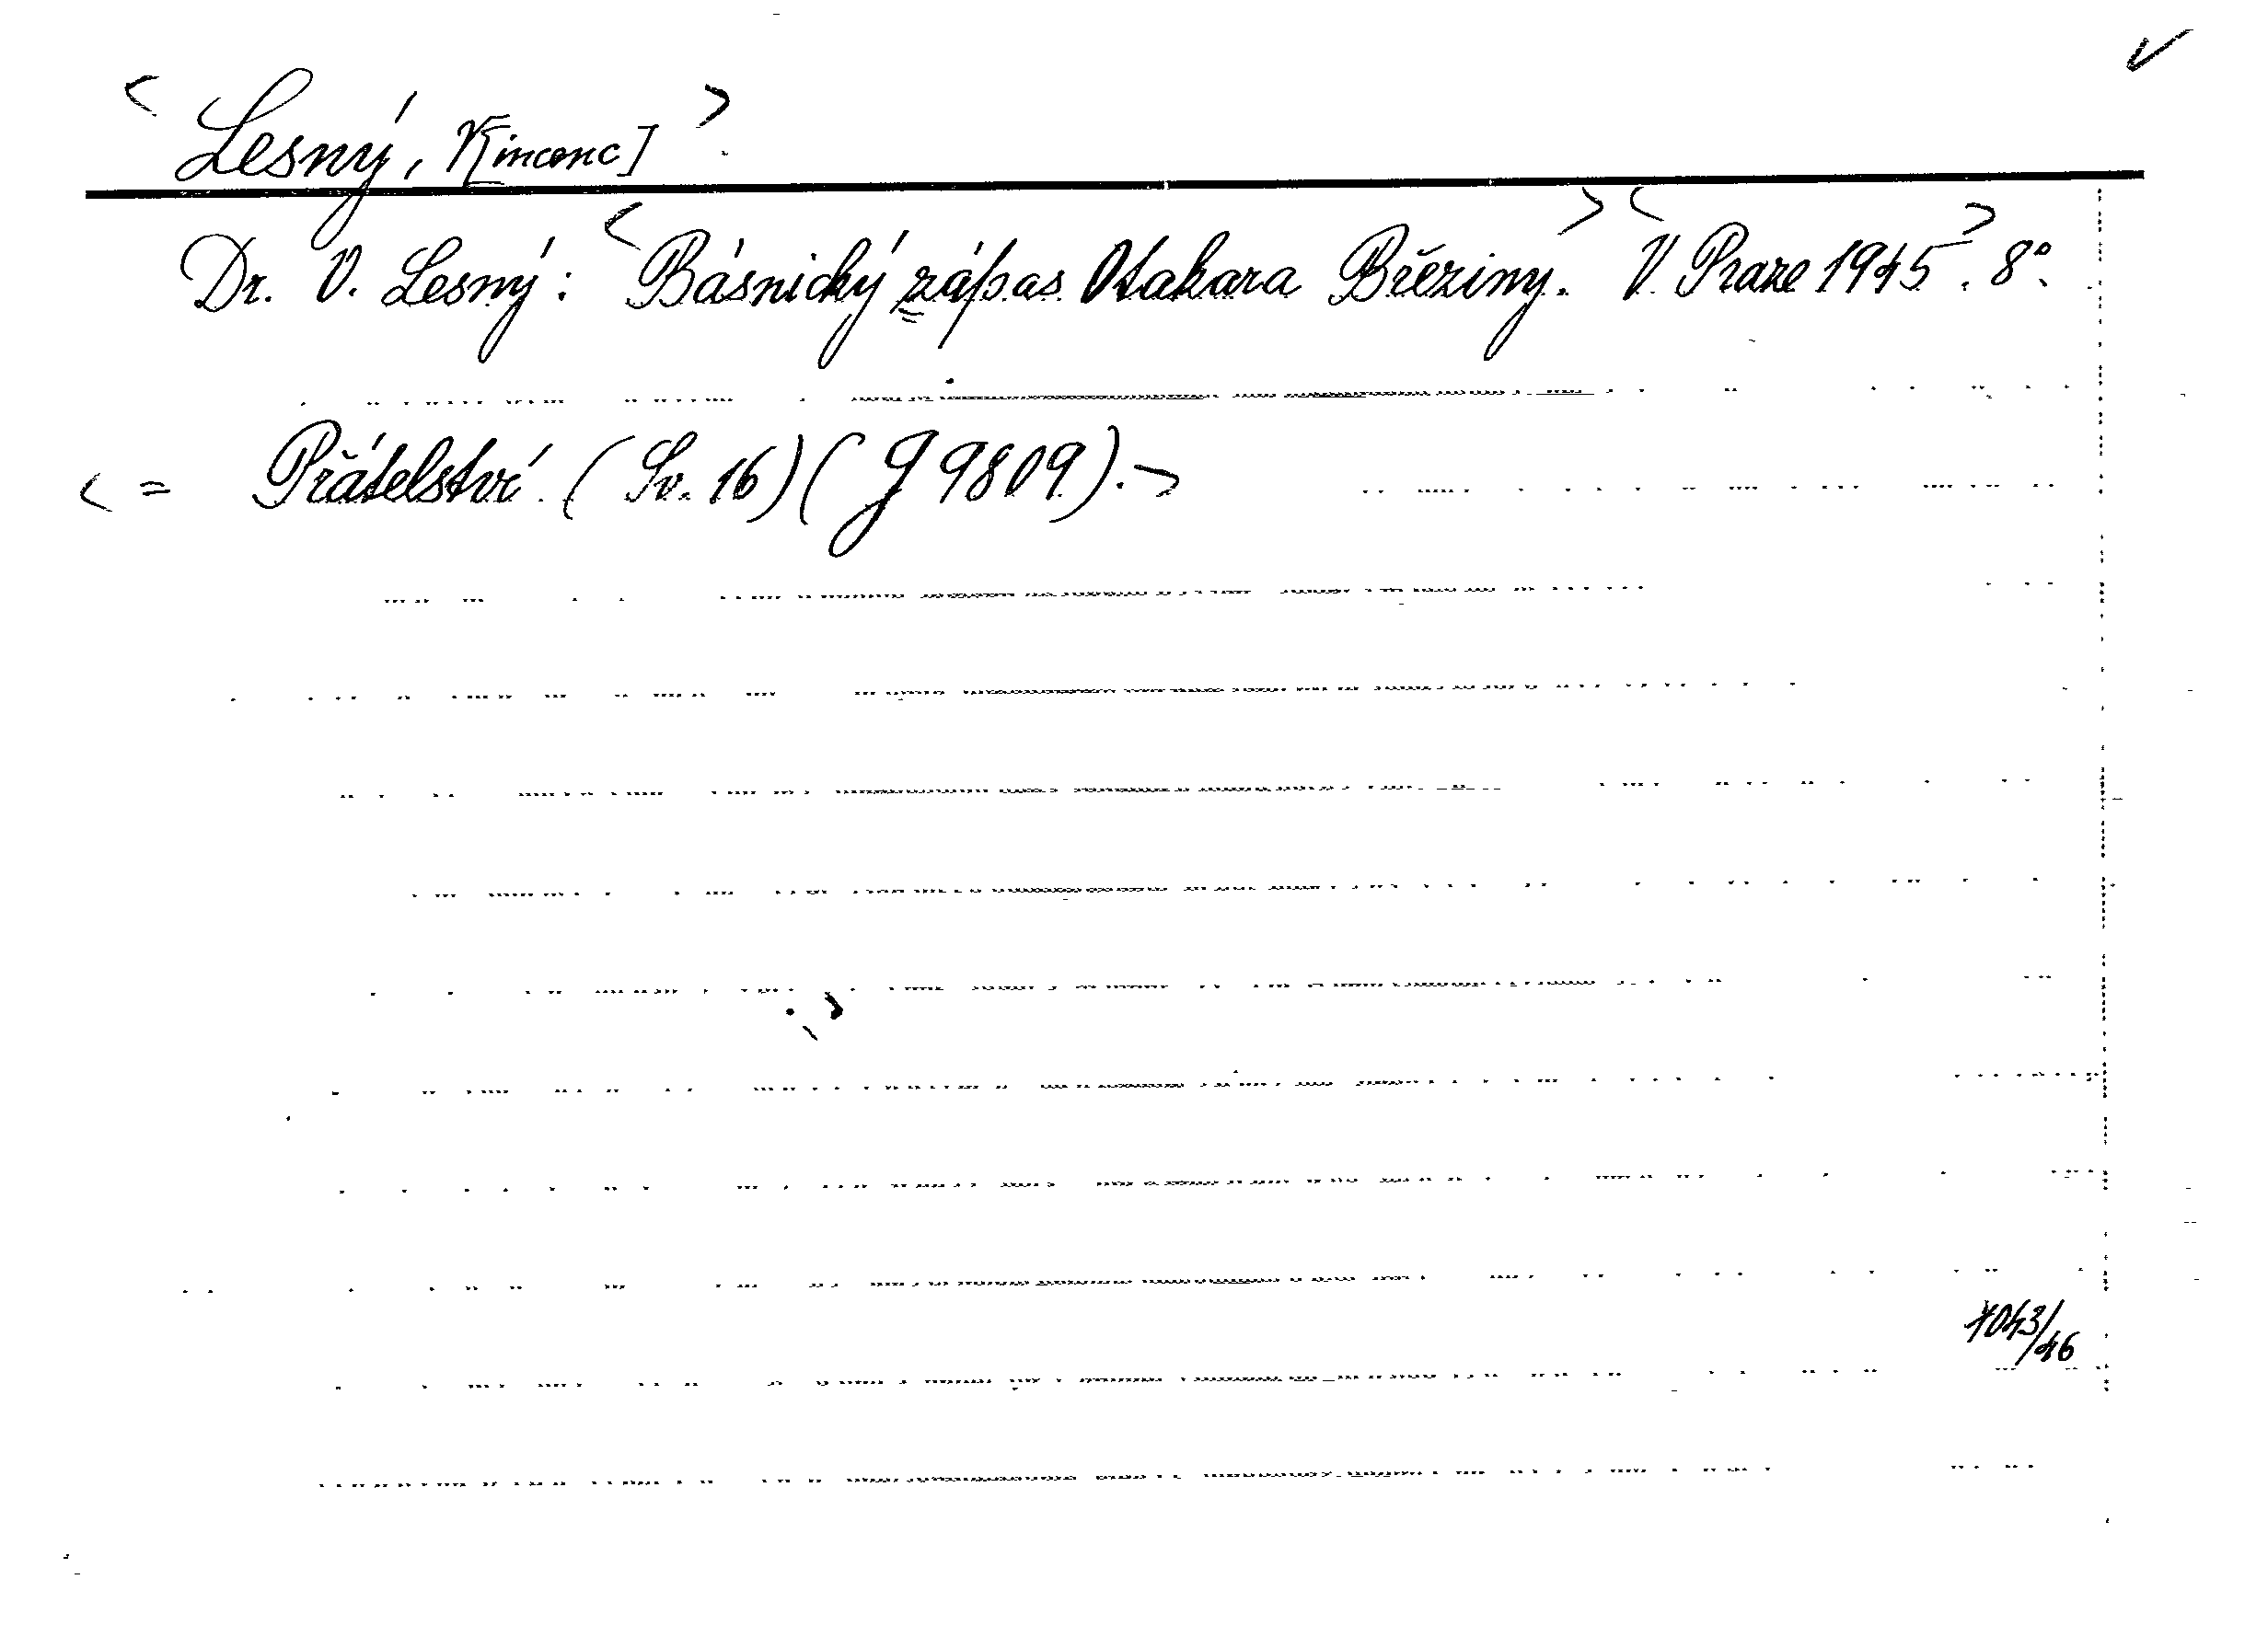 < Lesný, V[incenc] >
Dr. V. Lesný: < Básnický zápas Otakara Březiny. > < V Praze 1945 >. 8°.
< = Přátelství. (Sv. 16) (J 9809). >
1043/46